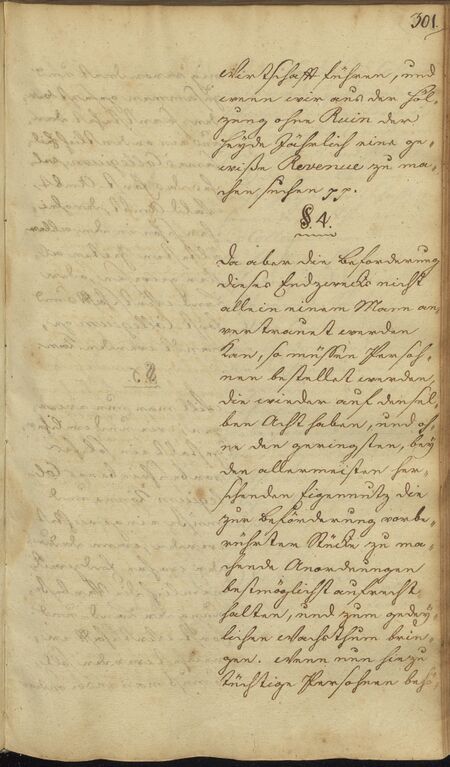 301.
Wirtschafft führen, und
wenn wir aus der Höl-
zung ohne Ruin der
Heyde Jährlich eine ge-
wiße Revenue zu ma-
chen suchen pp.
§ 4.
Da aber die Beforderung
dieses Endzwecks nicht
allein einem Mann an-
vertrauet werden
kan, so müssen Persoh-
nen bestellet werden,
die wieder auf densel-
ben Acht haben, und oh-
ne den geringsten, bey
den allermeisten her-
schenden Eigennutz die
zur Beförderung vorbe-
rührter Stücke zu ma-
chende Anordnungen
bestmöglichst aufrecht
halten, und zum gedey-
lichen Wachsthum brin-
gen. Wenn nun hiezu
tüchtige Persohnen